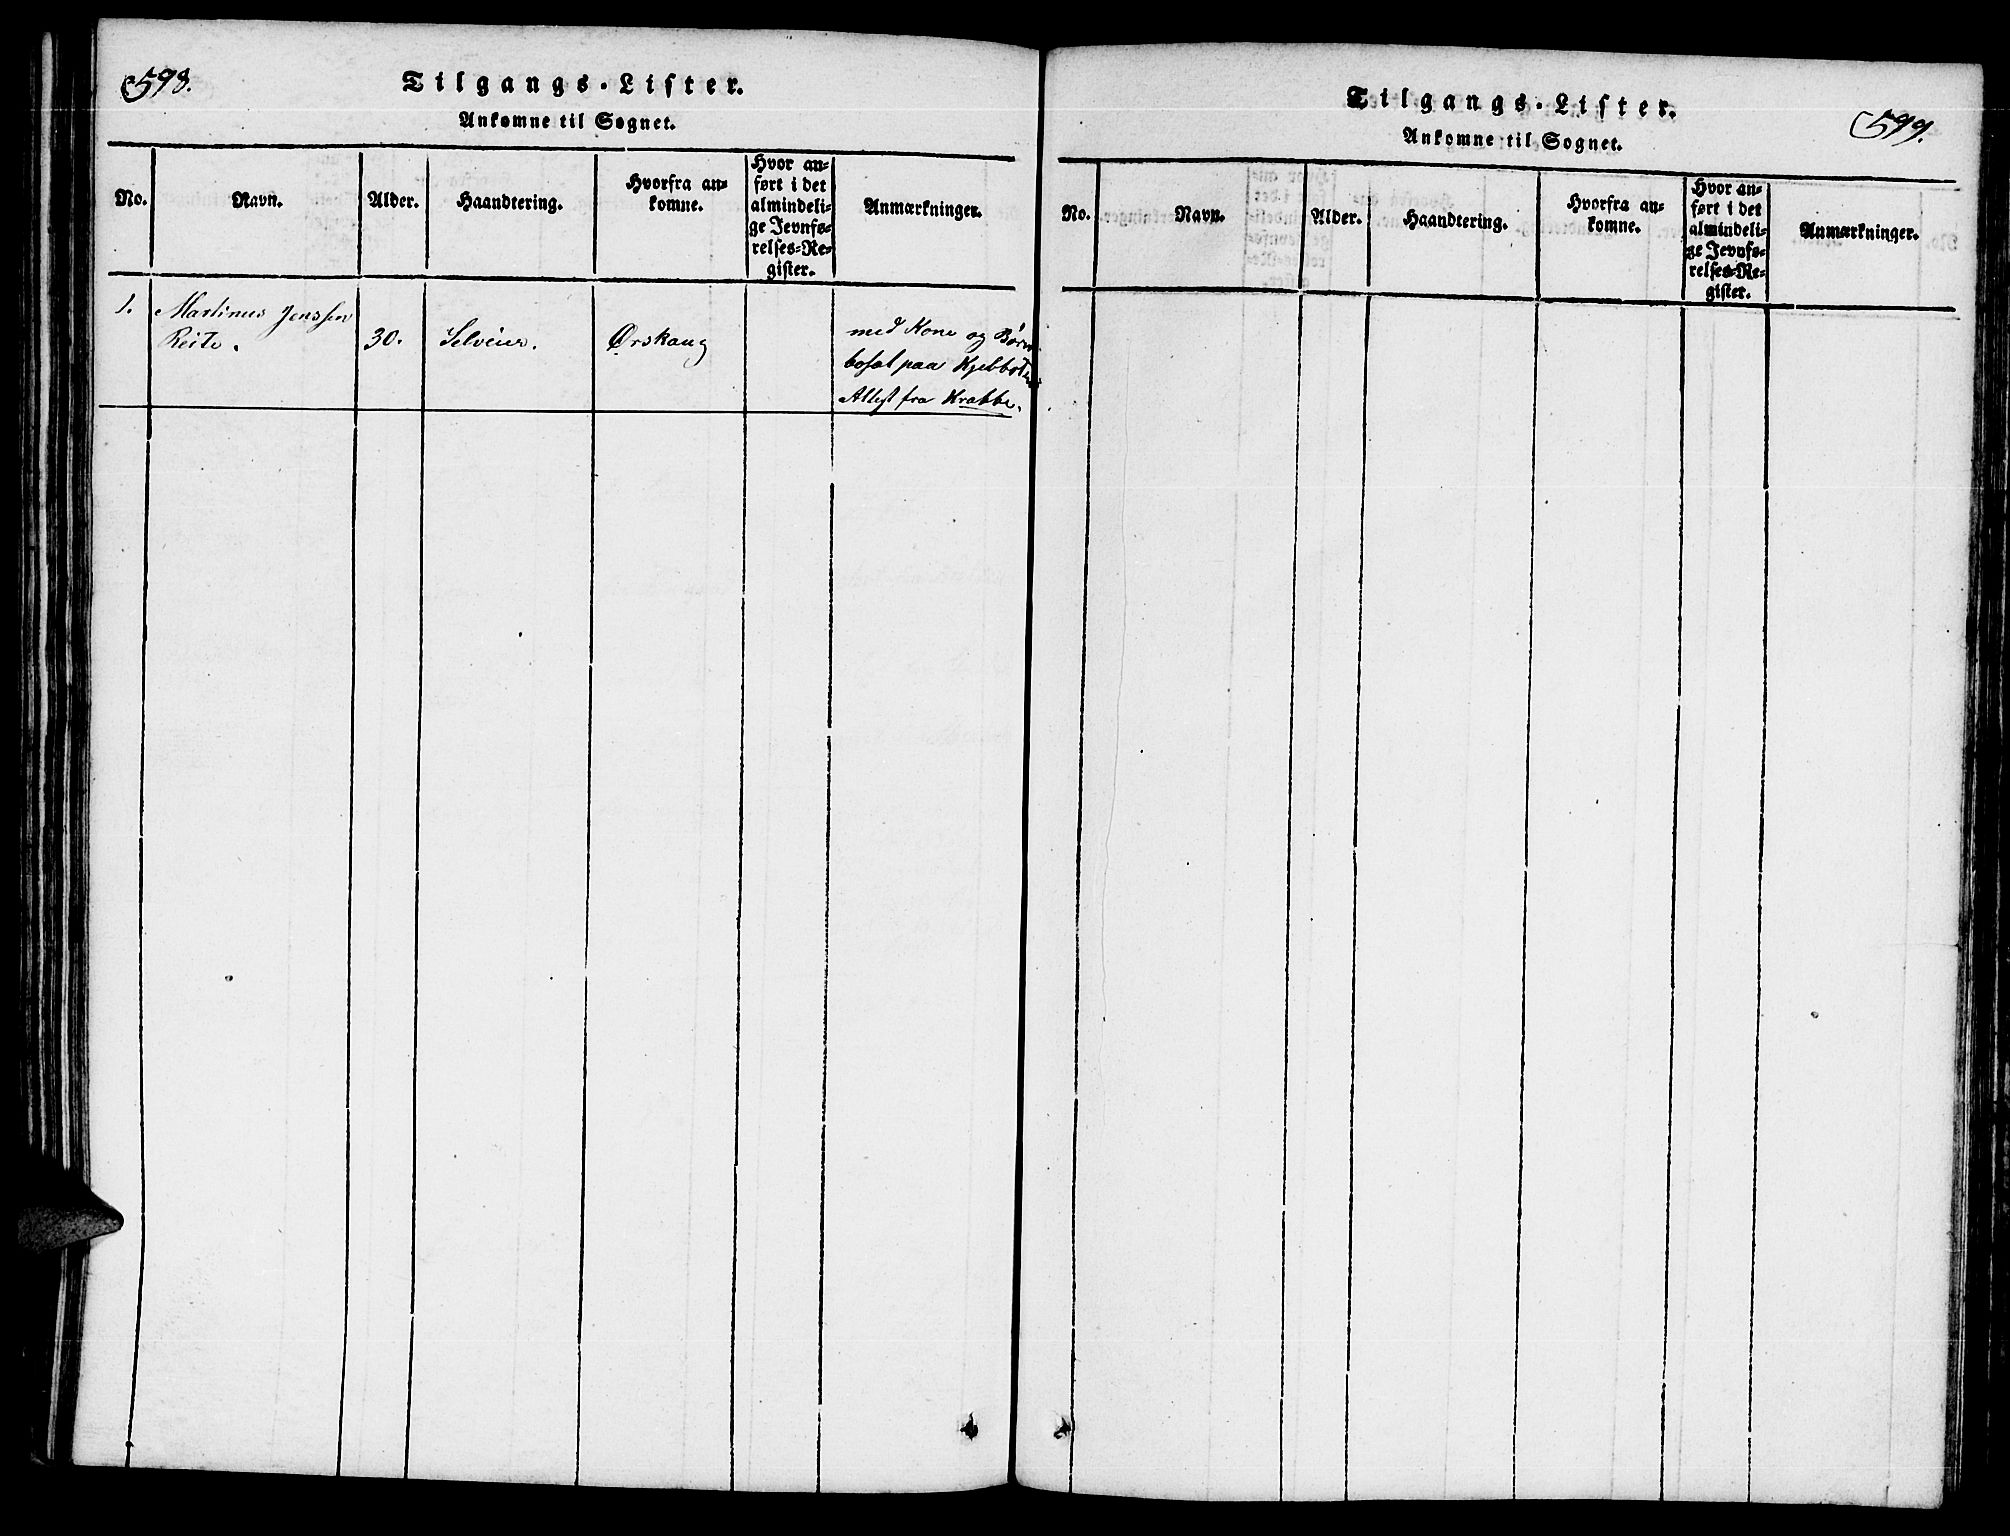 598.
Tilgangs-Lister.
Ankomne til Sognet.
No.
Navn.
Alder.
Haandtering.
Hvorfra an-
komne.
Hvor an-
ført i det
almindeli-
ge Jevnfø-
relses-Re-
gister.
Anmærkninger.
1.
Martinus Jenssen
Reite.
30.
Selveier.
Ørskaug
med Kone og Børn
bosat paa
Attest fra Krabbe.
599.
Tilgangs-Lister.
Ankomne til Sognet.
No.
Navn.
Alder.
Haandtering.
Hvorfra an-
komne.
Hvor an-
ført i det
almindeli-
ge Jevnfø-
relses-Re-
gister.
Anmærkninger.